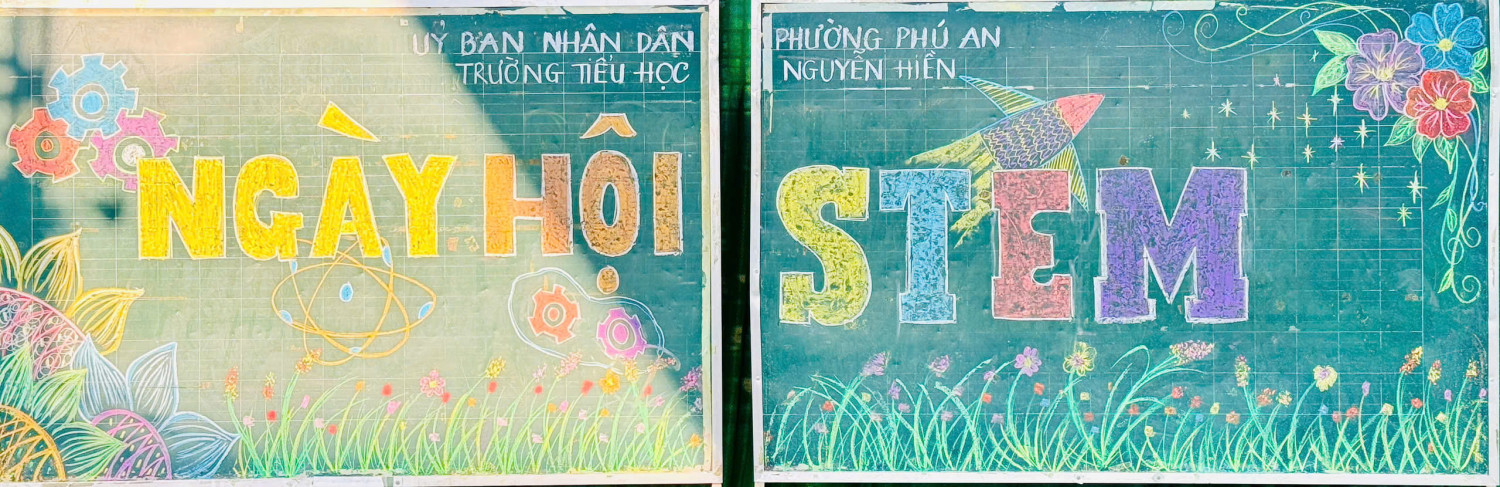 UỶ BAN NHÂN DÂN PHƯỜNG PHÚ AN
TRƯỜNG TIỂU HỌC NGUYỄN HIỀN
NGÀY HỘI STEM